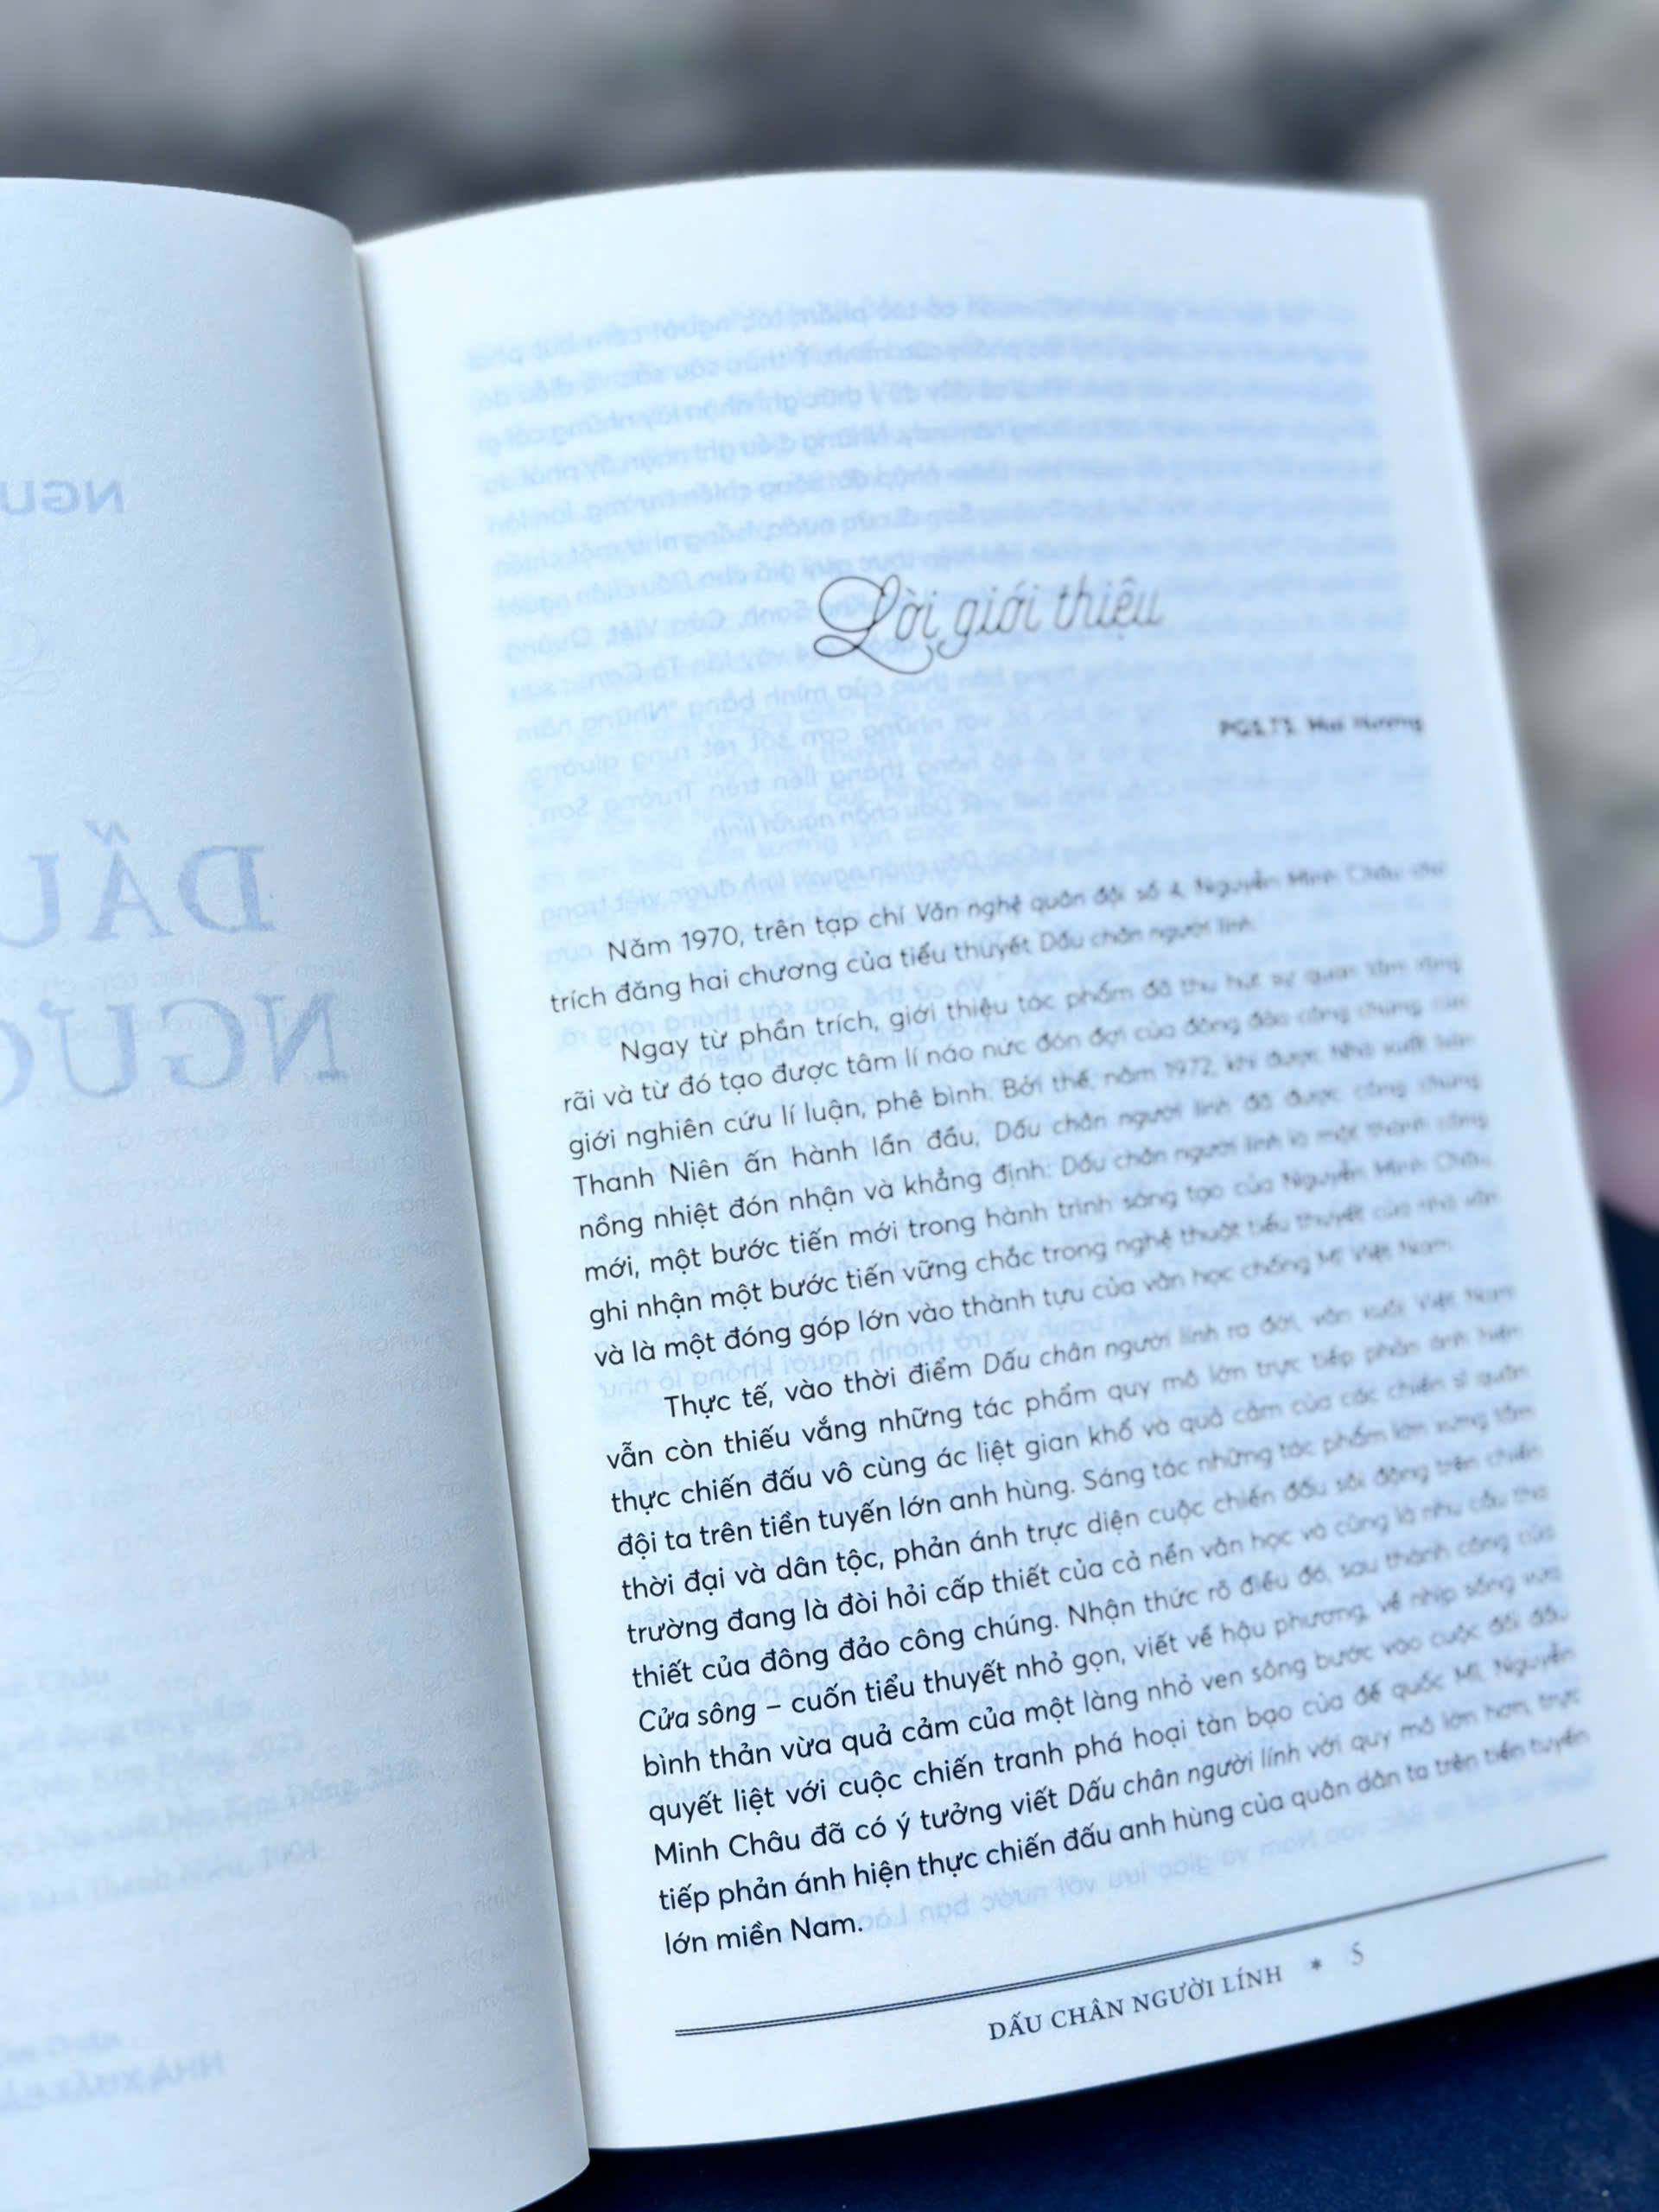 NGU
DẤU
NGƯỜ
Lời giới thiệu
PGS.TS. Mai Hương
Năm 1970, trên tạp chí Văn nghệ quân đội số 4, Nguyễn Minh Châu cho
trích đăng hai chương của tiểu thuyết Dấu chân người lính.
Ngay từ phần trích, giới thiệu tác phẩm đã thu hút sự quan tâm rộng
rãi và từ đó tạo được tâm lí náo nức đón đợi của đông đảo công chúng của
giới nghiên cứu lí luận, phê bình. Bởi thế, năm 1972, khi được Nhà xuất bản
Thanh Niên ấn hành lần đầu, Dấu chân người lính đã được công chúng
nồng nhiệt đón nhận và khẳng định: Dấu chân người lính là một thành công
mới, một bước tiến mới trong hành trình sáng tạo của Nguyễn Minh Châu,
ghi nhận một bước tiến vững chắc trong nghệ thuật tiểu thuyết của nhà văn
và là một đóng góp lớn vào thành tựu của văn học chống Mĩ Việt Nam.
Thực tế, vào thời điểm Dấu chân người lính ra đời, văn xuôi Việt Nam
vẫn còn thiếu vắng những tác phẩm quy mô lớn trực tiếp phản ánh hiện
thực chiến đấu vô cùng ác liệt gian khổ và quả cảm của các chiến sĩ quân
đội ta trên tiền tuyến lớn anh hùng. Sáng tác những tác phẩm lớn xứng tầm
thời đại và dân tộc, phản ánh trực diện cuộc chiến đấu sôi động trên chiến
trường đang là đòi hỏi cấp thiết của cả nền văn học và cũng là nhu cầu tha
thiết của đông đảo công chúng. Nhận thức rõ điều đó, sau thành công của
Cửa sông – cuốn tiểu thuyết nhỏ gọn, viết về hậu phương, về nhịp sống vừa
bình thản vừa quả cảm của một làng nhỏ ven sông bước vào cuộc đối đầu
quyết liệt với cuộc chiến tranh phá hoại tàn bạo của đế quốc Mĩ, Nguyễn
Minh Châu đã có ý tưởng viết Dấu chân người lính với quy mô lớn hơn, trực
tiếp phản ánh hiện thực chiến đấu anh hùng của quân dân ta trên tiền tuyến
lớn miền Nam.
DẤU CHÂN NGƯỜI LÍNH * 5